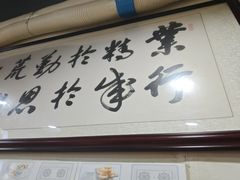 業精於勤荒
行成於思